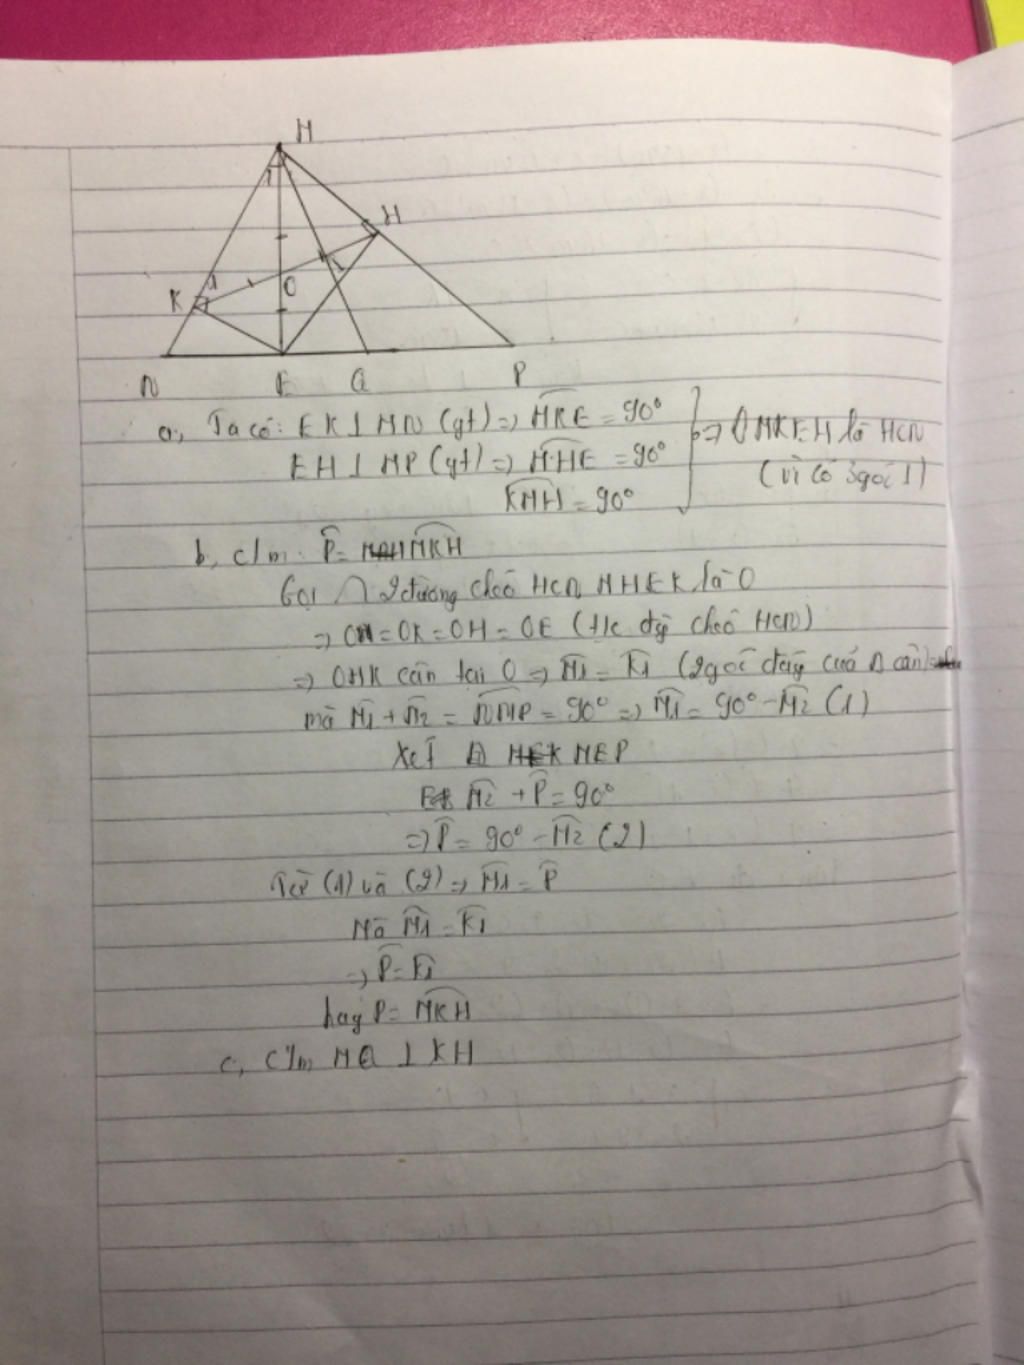 M
H
K 1
O
N E Q P
a, Ta có: EK ⊥ MN (gt) => MKE = 90°
EH ⊥ MP (gt) => MHE = 90°
KMH = 90°
=> ◊ MKEH là HCN
(vì có 3 góc ⊥)
b, c/m: P̂ = MKH
Gọi ∩ 2 đường chéo HCN MHEK là O
=> OM = OK = OH = OE (t/c đg chéo HCN)
=> OMK cân tại O => M1 = K1 (2 góc đáy của Δ cân)
mà M1 + M2 = NMP = 90° => M1 = 90° - M2 (1)
Xét MEP
M2 + P̂ = 90°
=> P̂ = 90° - M2 (2)
Từ (1) và (2) => M1 = P̂
Mà M1 = K1
=> P̂ = K1
hay P = MKH
c, C/m MQ ⊥ KH